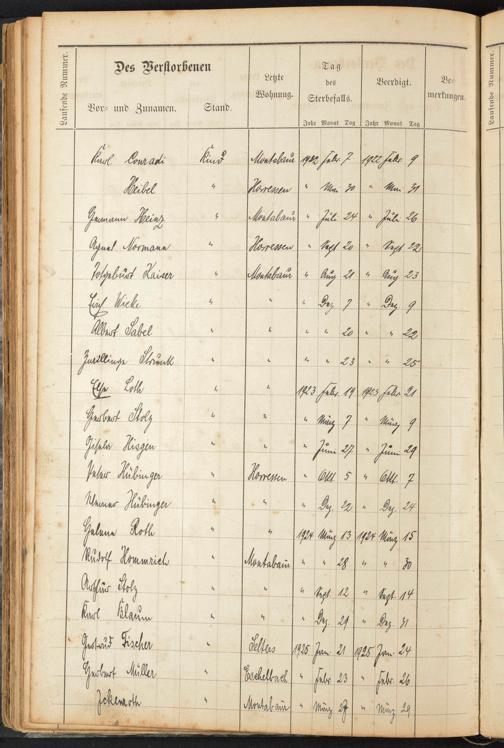 Laufende Nummer. Des Verstorbenen Letzte Wohnung. Tag des Sterbefalls. Beerdigt. Bemerkungen.
Vor- und Zunamen. Stand.
Jahr Monat Tag Jahr Monat Tag
Karl Conradi Kind Montabaur 1922 Febr. 7 1922 Febr. 9
Heibel " Horressen " 30 " 31
Heinz " Montabaur " Juli 24 " Juli 26
Agnes Normann " Horressen " Sept 20 " Sept 22
Kaiser " Montabaur " Aug 21 " Aug 23
Wicke " " " Dez 7 " Dez 9
Albert Sabel " " " " 20 " " 22
Zwillinge Strunk " " " " 23 " " 25
Else Loth " " 1923 Febr. 19 1923 Febr. 21
Herbert Stolz " " " März 7 " März 9
Gisela Hisgen " " " Juni 27 " Juni 29
Peter Hübinger " Horressen " Okt. 5 " Okt. 7
Werner Hübinger " " " Dez. 22 " Dez. 24
Helene Roth " " 1924 März 13 1924 März 15
Rudolf Hommrich " Montabaur " " 28 " " 30
Arthur Stolz " " " Sept. 12 " Sept. 14
Karl Klaum " " " Dez. 29 " Dez. 31
Gertrud Fischer " Selters 1925 Jan. 21 1925 Jan. 24
Herbert Müller " Eschelbach " Febr. 23 " Febr. 26
" Montabaur " März 27 " März 29
Laufende Nummer.